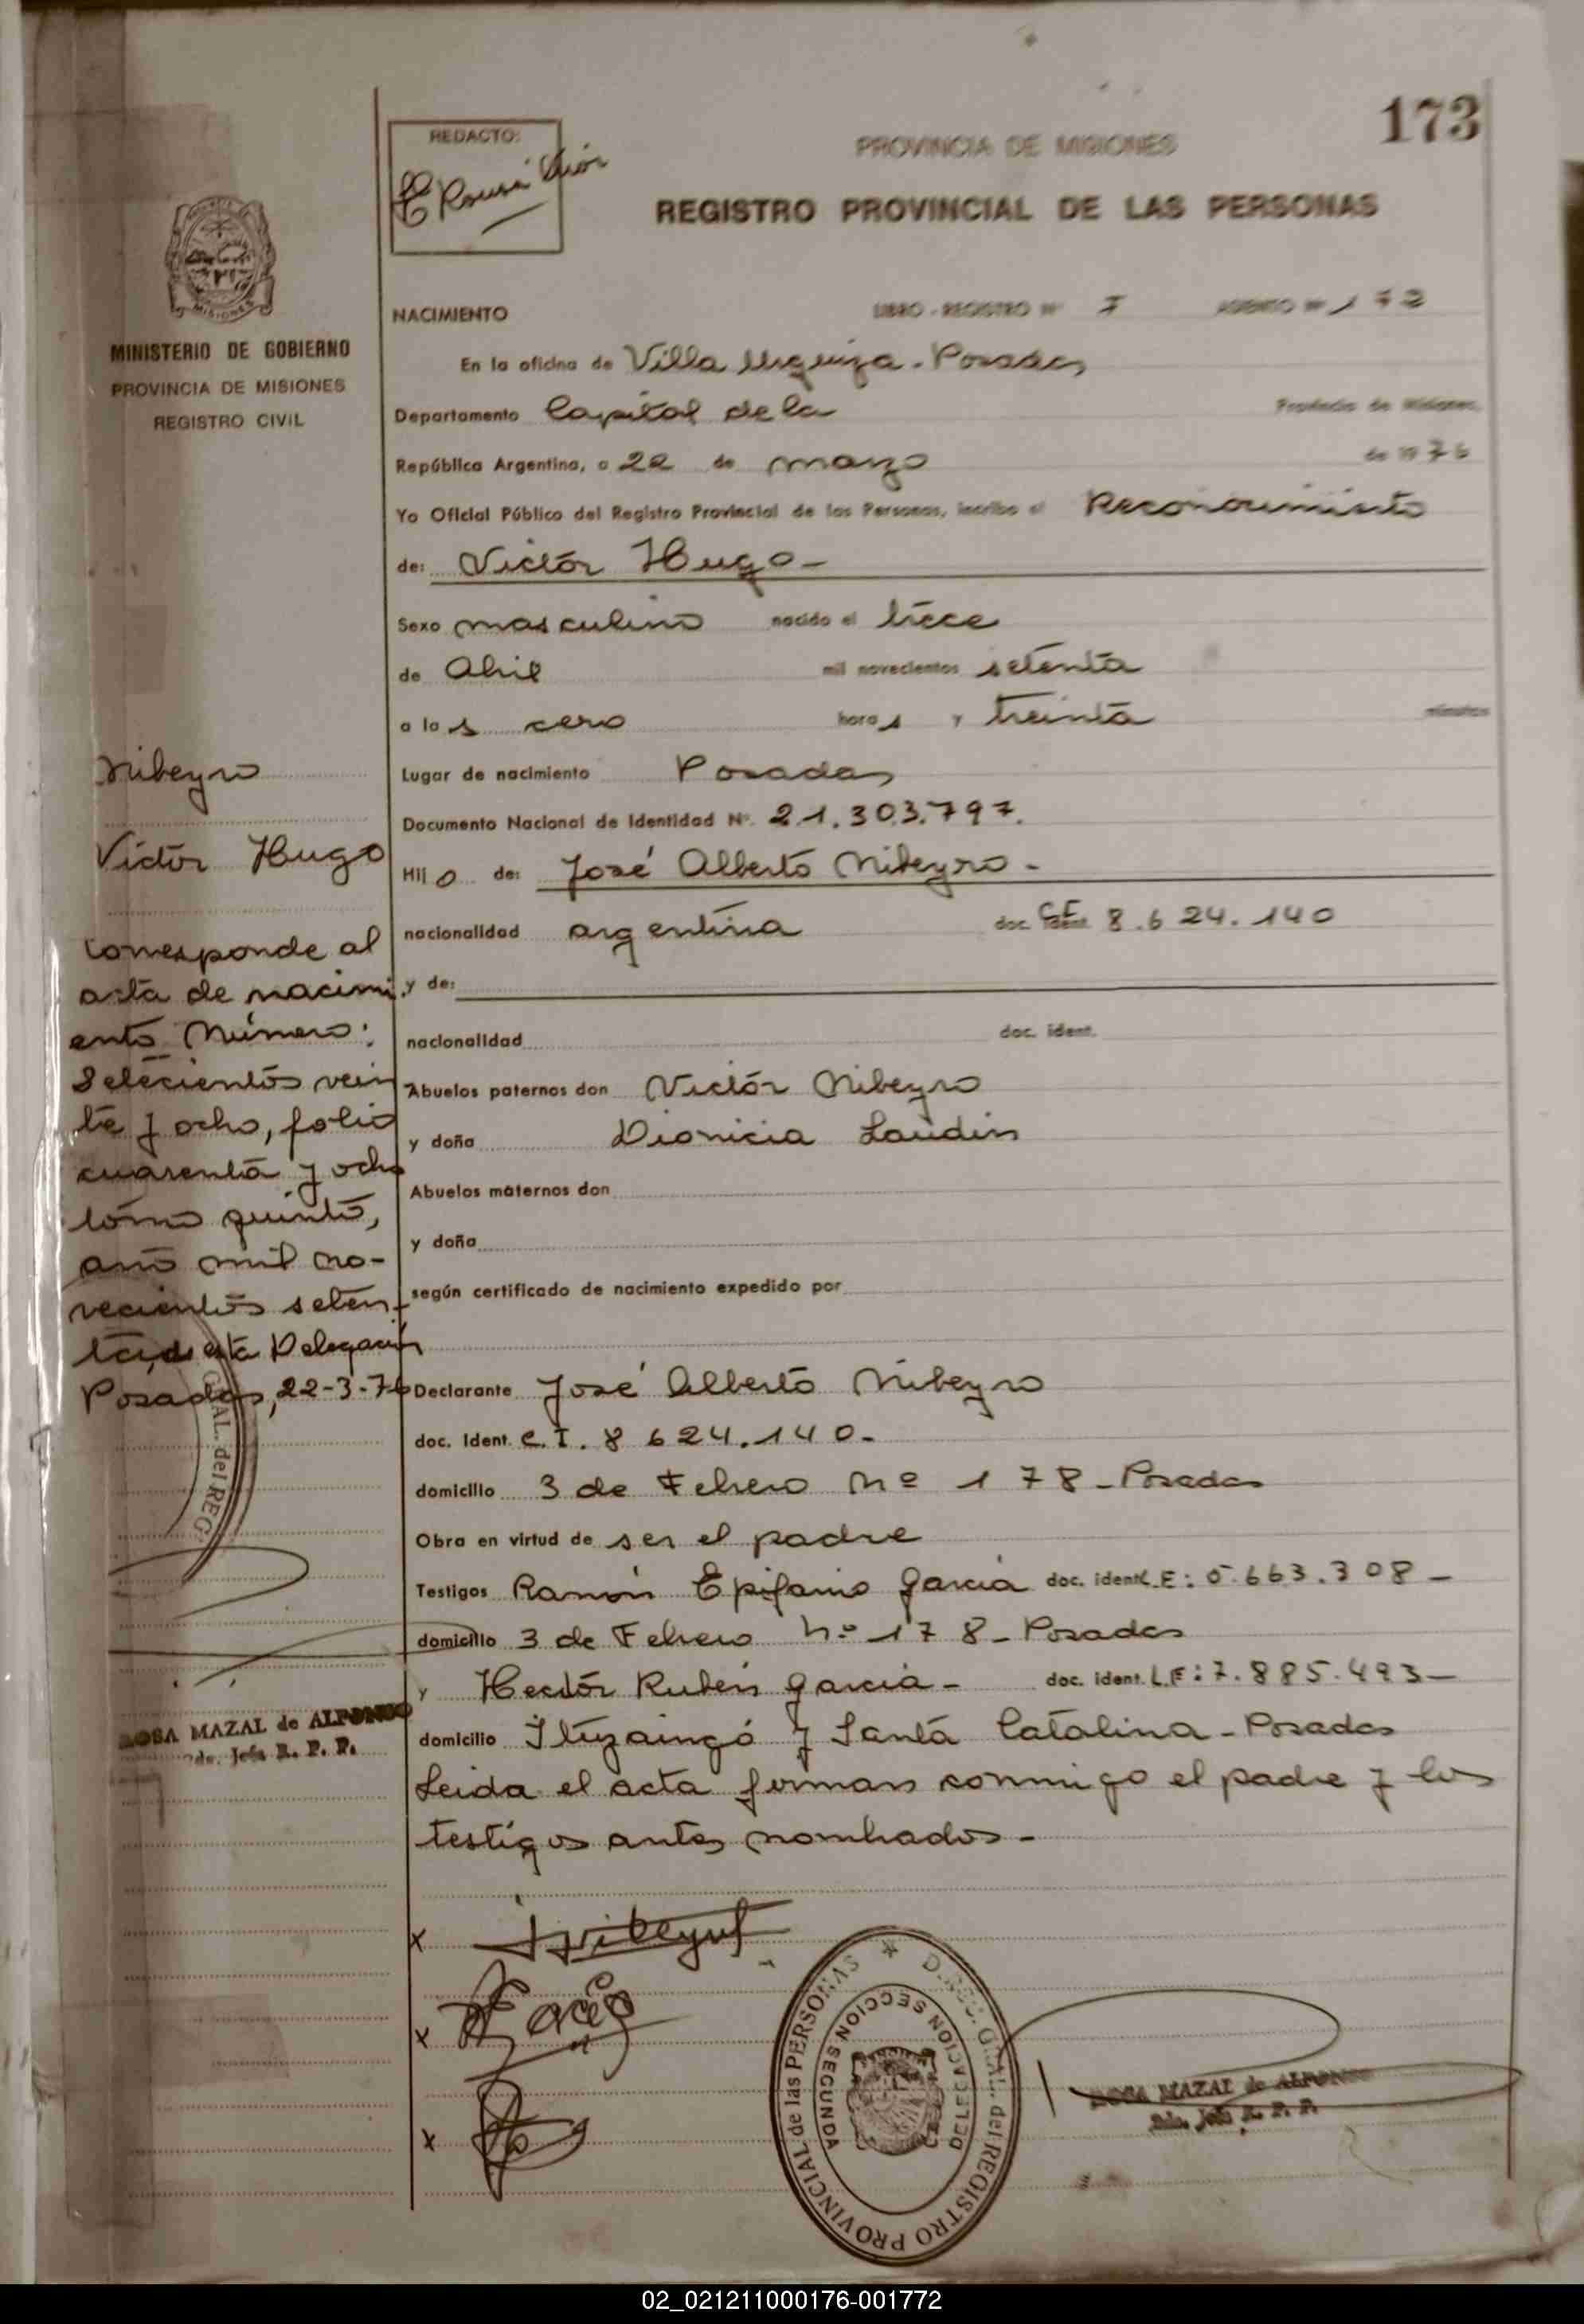 173
REDACTO:
PROVINCIA DE MISIONES
REGISTRO PROVINCIAL DE LAS PERSONAS
MISIONES
MINISTERIO DE GOBIERNO
PROVINCIA DE MISIONES
REGISTRO CIVIL
NACIMIENTO LIBRO - REGISTRO Nº 7 ASIENTO Nº 172
En la oficina de Villa Urquiza - Posadas
Departamento Capital de la Provincia de Misiones,
República Argentina, a 22 de marzo de 1976
Yo Oficial Público del Registro Provincial de las Personas, incribo el Reconocimiento
de: Victór Hugo -
Sexo masculino nacido el trece
de Abril mil novecientos setenta
a las cero horas y treinta minutos
Lugar de nacimiento Posadas
Documento Nacional de Identidad Nº. 21.303.797.
Hijo de: José Alberto Nibeyro -
nacionalidad argentina doc. ident. 8.624.140
y de:
nacionalidad doc. ident.
Abuelos paternos don Victór Nibeyro
y doña Dionicia Laudin
Abuelos maternos don
y doña
según certificado de nacimiento expedido por
Declarante José Alberto Nibeyro
doc. Ident. C.I. 8 624.140.-
domicilio 3 de Febrero Nº 178 - Posadas
Obra en virtud de ser el padre
Testigos Ramón Epifanio Garcia doc. ident L.E: 5.663.308 -
domicilio 3 de Febrero Nº 178 - Posadas
y Hectór Rubén Garcia - doc. ident. L.E: 7.885.493 -
domicilio Ituzaingó y Santa Catalina - Posadas
Leida el acta firman conmigo el padre y los
testigos antes nombrados -
Nibeyro
Victór Hugo
Corresponde al
acta de nacimi
ento Número:
Setecientos vein
te y ocho, folio
cuarenta y ocho
tomo quinto,
año mil no-
vecientos seten-
ta, de esta Delegación
Posadas, 22-3-76
RAL. del REG
ROSA MAZAL de ALFONSO
Jefa R. P. P.
x
x
x
DIREC. GRAL. del REGISTRO PROVINCIAL de las PERSONAS
DELEGACION SECCION SEGUNDA
ROSA MAZAL de ALFONSO
Jefa R. P. P.
02_021211000176-001772